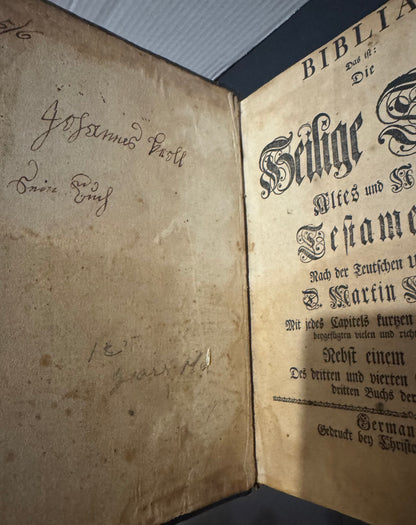 5/6
Johannes Kroll
Sein Buch
BIBLIA
Das ist:
Die
Heilige
Altes und
Testame
Nach der Teutschen
D. Martin
Mit jedes Capitels kurtzen
beygefügten vielen und
Nebst einem
Des dritten und vierten
dritten Buchs der
German
Gedruckt bey Christo